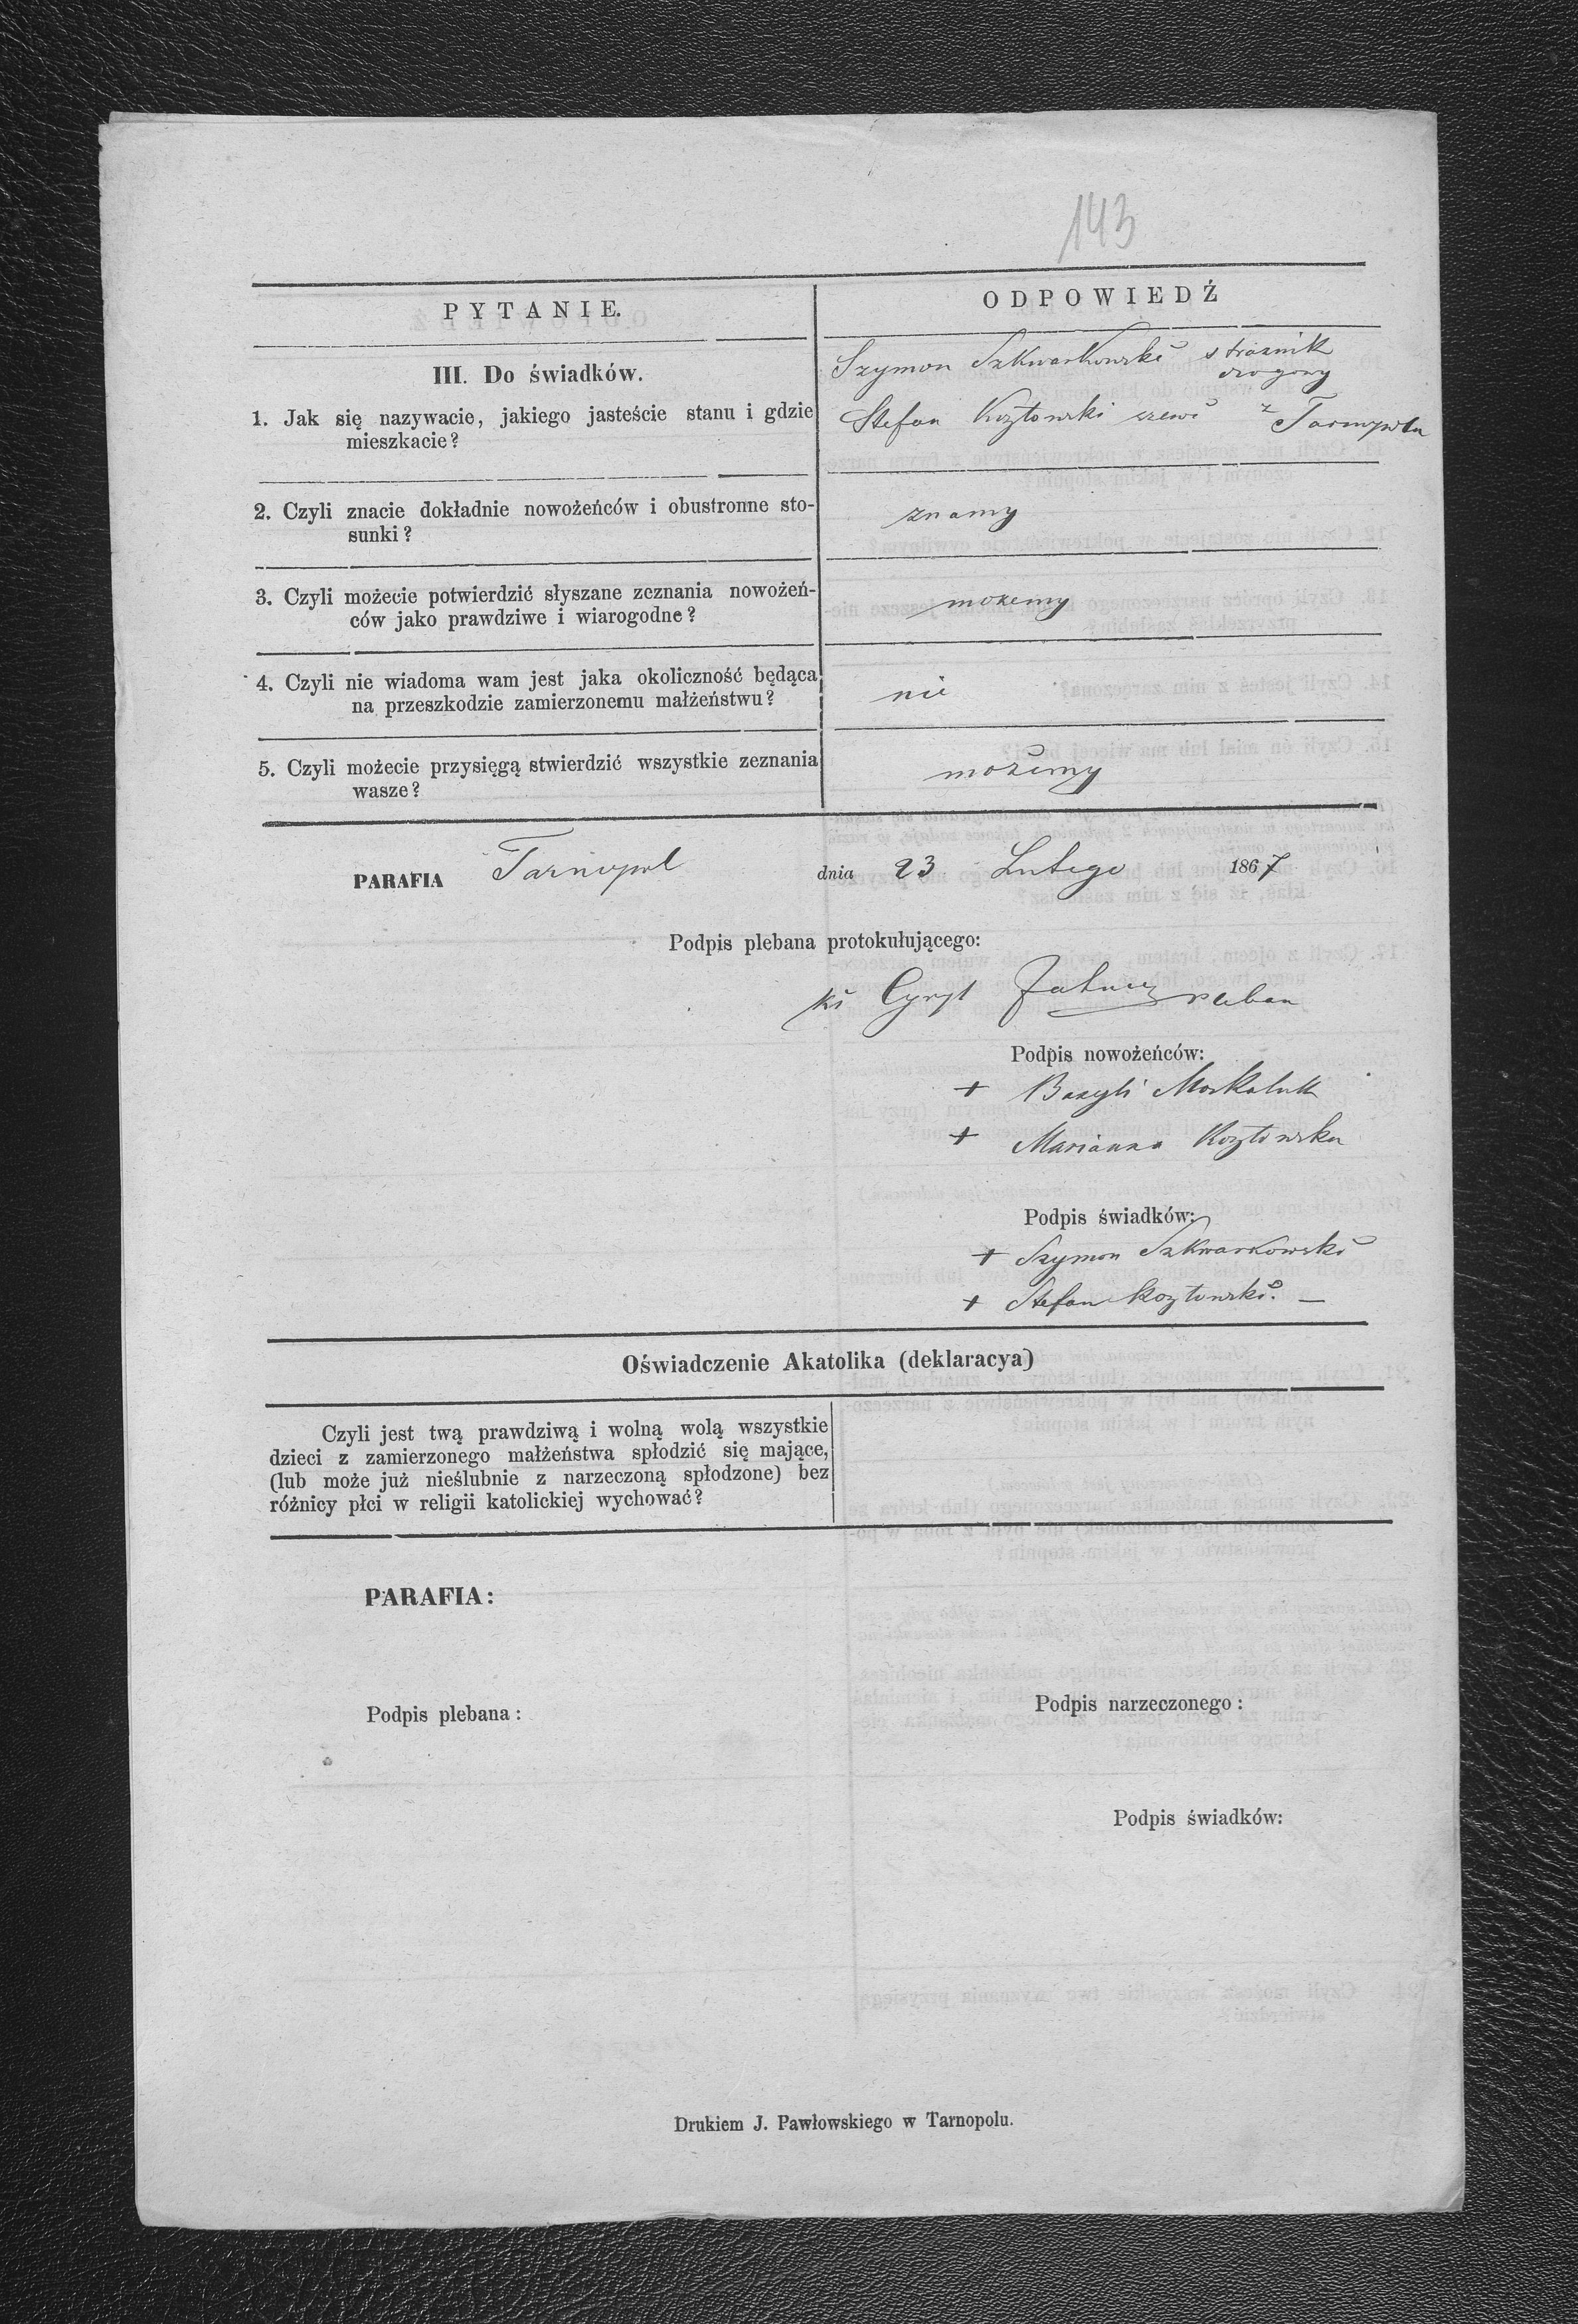 143
PYTANIE.
ODPOWIEDŹ
III. Do świadków.
Szymon Szkwarkowski strażnik
drogowy
1. Jak się nazywacie, jakiego jasteście stanu i gdzie
mieszkacie?
Stefan Kozłowski szewc z Tarnopola
2. Czyli znacie dokładnie nowożeńców i obustronne sto-
sunki?
znamy
3. Czyli możecie potwierdzić słyszane zeznania nowożeń-
ców jako prawdziwe i wiarogodne?
możemy
4. Czyli nie wiadoma wam jest jaka okoliczność będąca
na przeszkodzie zamierzonemu małżeństwu?
nie
5. Czyli możecie przysięgą stwierdzić wszystkie zeznania
wasze?
możemy
PARAFIA Tarnopol dnia 23 Lutego 1867
Podpis plebana protokułującego:
ks Cyryl pleban
Podpis nowożeńców:
+ Bazyli Moskaluk
+ Marianna Kozłowska
Podpis świadków:
+ Szymon Szkwarkowski
+ Stefan Kozłowski. —
Oświadczenie Akatolika (deklaracya)
Czyli jest twą prawdziwą i wolną wolą wszystkie
dzieci z zamierzonego małżeństwa spłodzić się mające,
(lub może już nieślubnie z narzeczoną spłodzone) bez
różnicy płci w religii katolickiej wychować?
PARAFIA:
Podpis plebana:
Podpis narzeczonego:
Podpis świadków:
Drukiem J. Pawłowskiego w Tarnopolu.